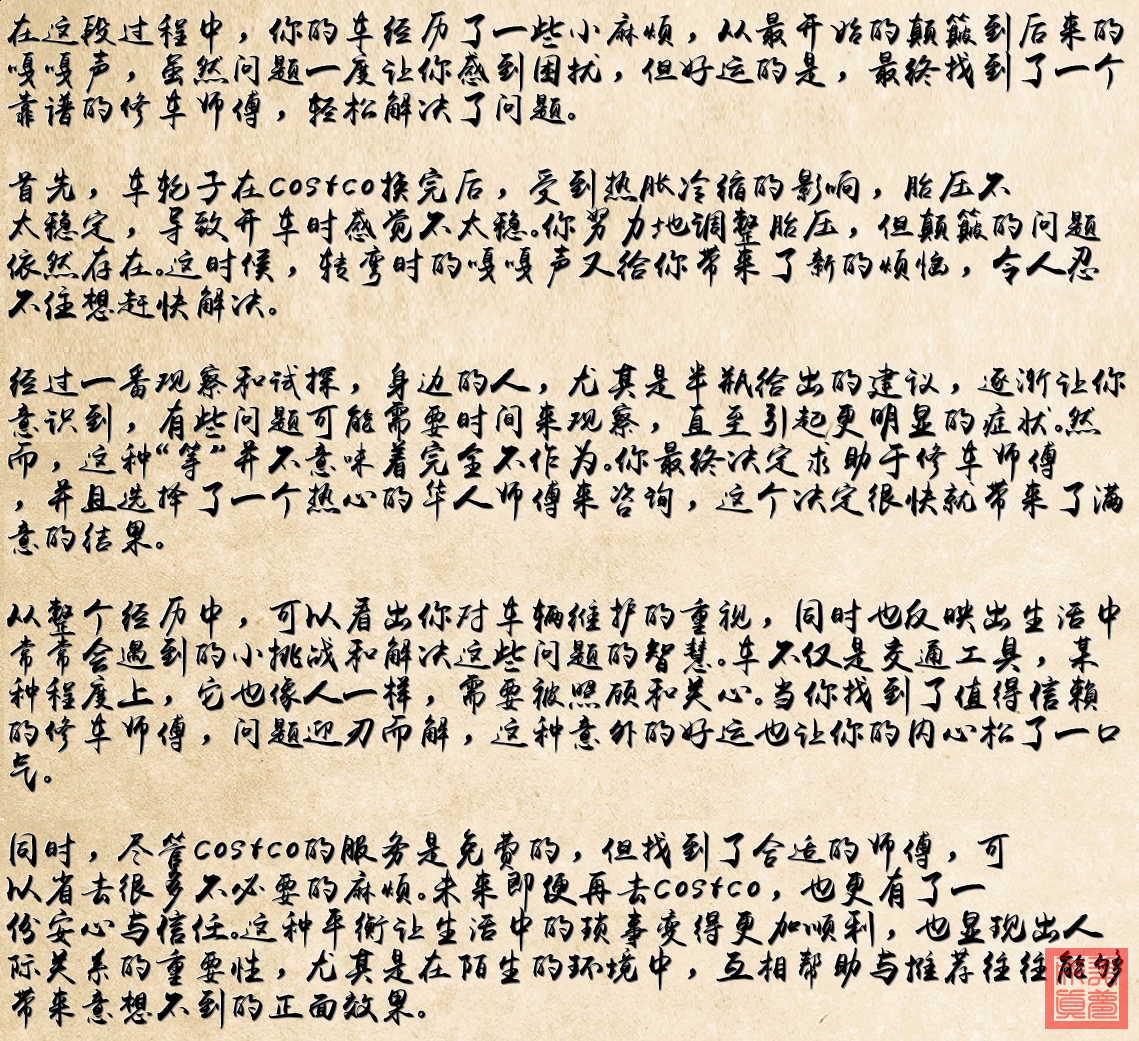 在这段过程中，你的车经历了一些小麻烦，从最开始的颠簸到后来的
嘎嘎声，虽然问题一度让你感到困扰，但好运的是，最终找到了一个
靠谱的修车师傅，轻松解决了问题。
首先，车轮子在costco换完后，受到热胀冷缩的影响，胎压不
太稳定，导致开车时感觉不太稳。你努力地调整胎压，但颠簸的问题
依然存在。这时候，转弯时的嘎嘎声又给你带来了新的烦恼，令人忍
不住想赶快解决。
经过一番观察和试探，身边的人，尤其是半瓶给出的建议，逐渐让你
意识到，有些问题可能需要时间来观察，直至引起更明显的症状。然
而，这种“等”并不意味着完全不作为。你最终决定求助于修车师傅
，并且选择了一个热心的华人师傅来咨询，这个决定很快就带来了满
意的结果。
从整个经历中，可以看出你对车辆维护的重视，同时也反映出生活中
常常会遇到的小挑战和解决这些问题的智慧。车不仅是交通工具，某
种程度上，它也像人一样，需要被照顾和关心。当你找到了值得信赖
的修车师傅，问题迎刃而解，这种意外的好运也让你的内心松了一口
气。
同时，尽管costco的服务是免费的，但找到了合适的师傅，可
以省去很多不必要的麻烦。未来即便再去costco，也更有了一
份安心与信任。这种平衡让生活中的琐事变得更加顺利，也显现出人
际关系的重要性，尤其是在陌生的环境中，互相帮助与推荐往往能够
带来意想不到的正面效果。